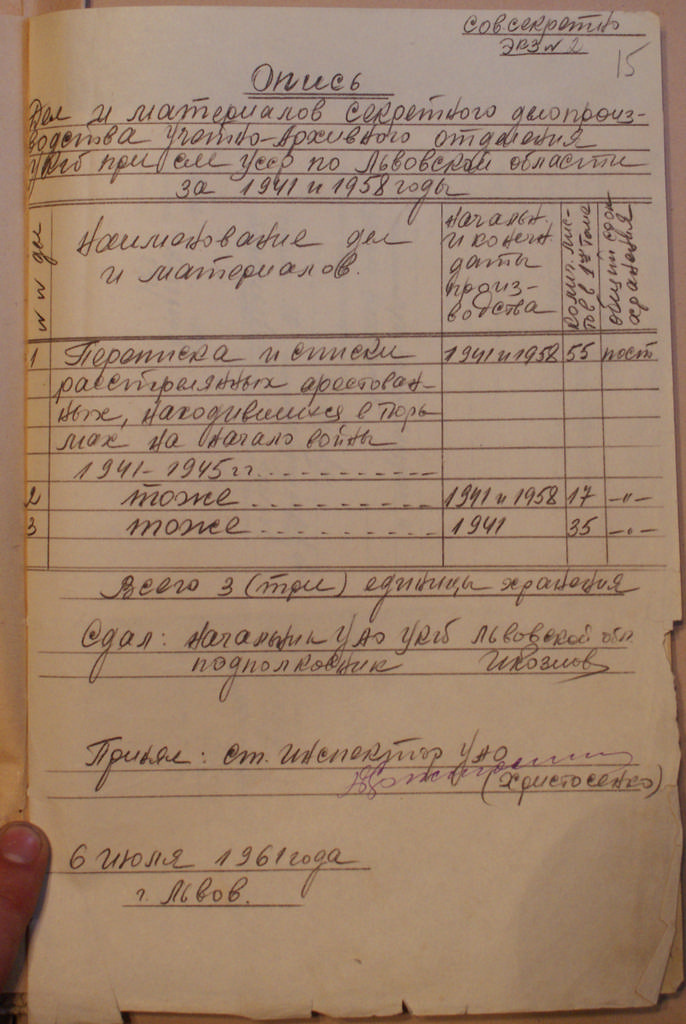 Совсекретно
Экз № 2
15
Опись
Дел и материалов секретного делопроиз-
водства Учетно-Архивного отделения
УКГБ при СМ УССР по Львовской области
за 1941 и 1958 годы
№ № дел
Наименование дел
и материалов.
Начальн.
и конечн.
даты
произ-
водства
Колич. лис-
тов в 1й томе
общий срок
хранения
1 Переписка и списки 1941 и 1958 55 пост
расстрелянных арестован-
ных, находившихся в тюрь-
мах на начало войны
1941-1945 гг.
2 тоже 1941 и 1958 17 -"-
3 тоже 1941 35 -"-
Всего 3 (три) единицы хранения
Сдал: Начальник УАО УКГБ Львовской обл.
подполковник ИКозлов
Принял: ст. инспектор УАО
(Христосенко)
6 июля 1961 года
г. Львов.